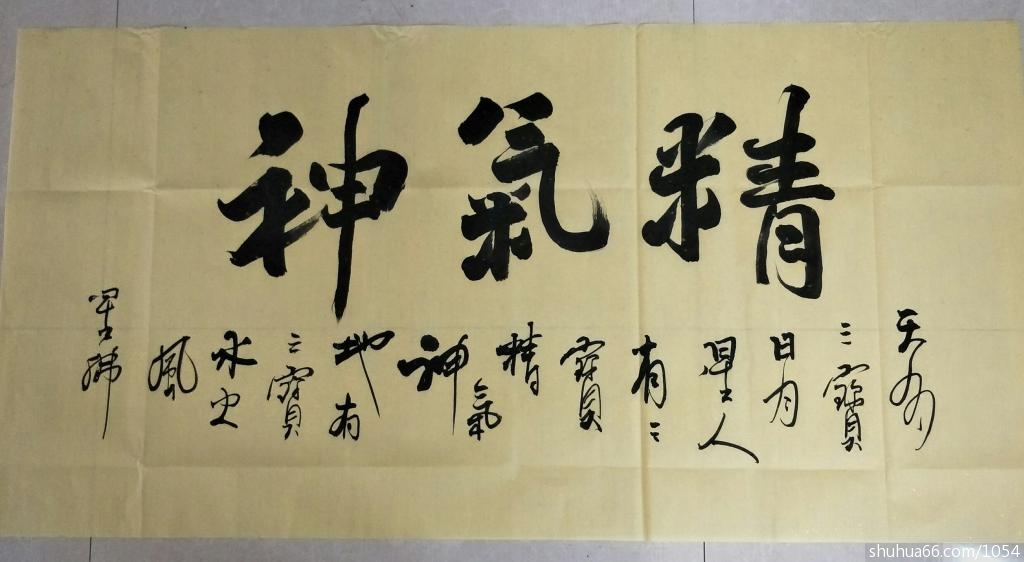 精氣神
天有
三寶
日月
星人
有三
寶
精氣
神
地有
三寶
水火
風